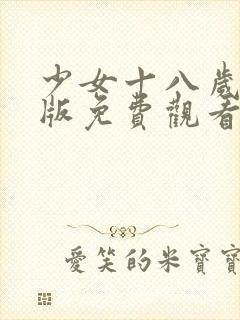 少女十八歲
版免費觀看
愛笑的米寶寶